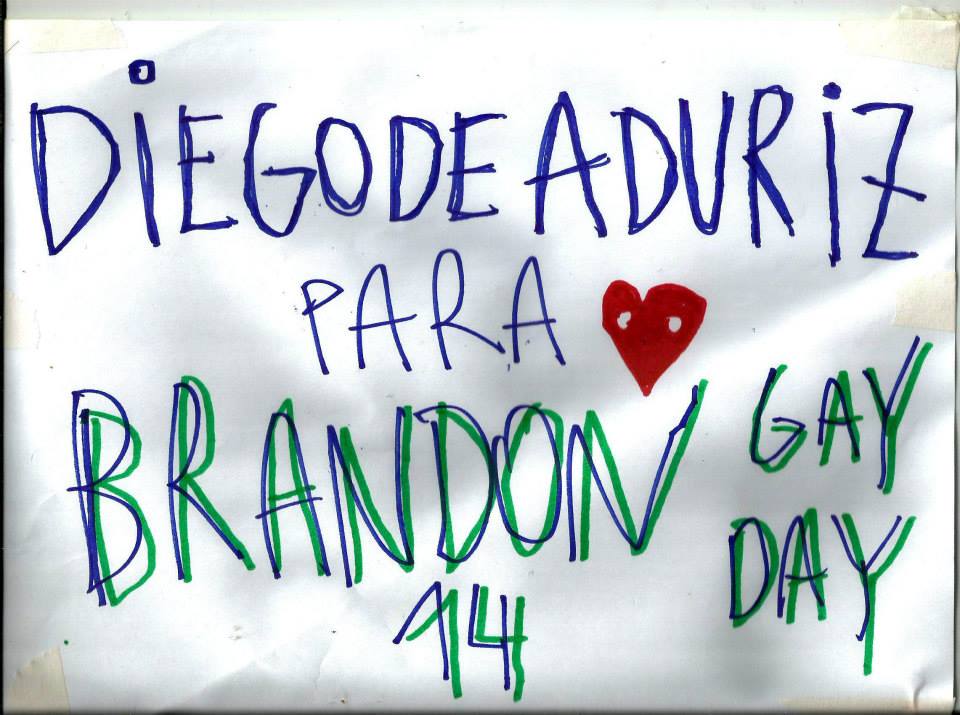 DiEGO DE ADURiZ
PARA
BRANDON
GAY
DAY
14